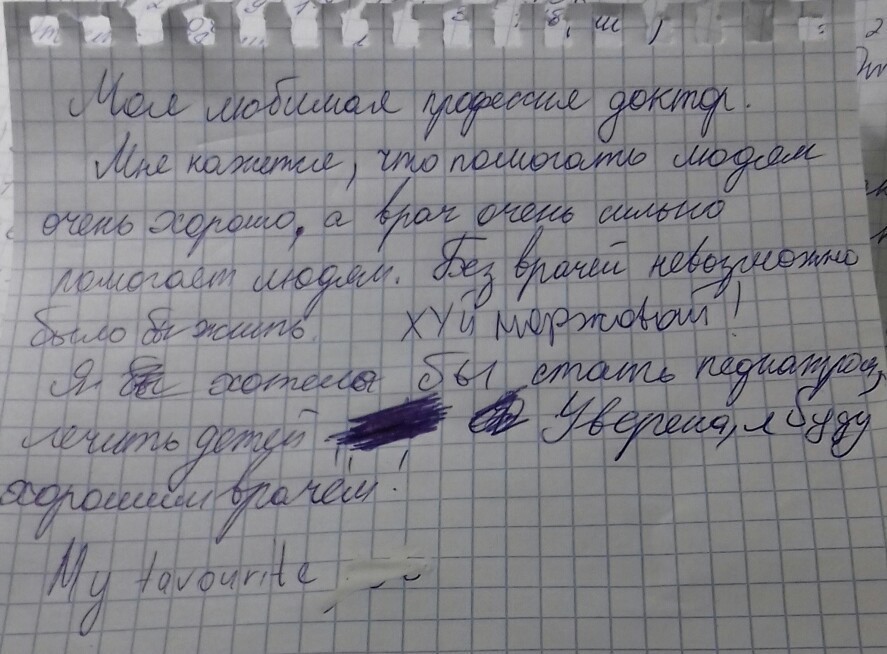 Моя любимая профессия доктор.
Мне кажется, что помогать людям
очень хорошо, а врач очень сильно
помогает людям. Без врачей невозможно
было бы жить. ХУЙ моржовой!
Я хотела бы стать педиатром,
лечить детей Уверена, я буду
хорошим врачём!
My favourite